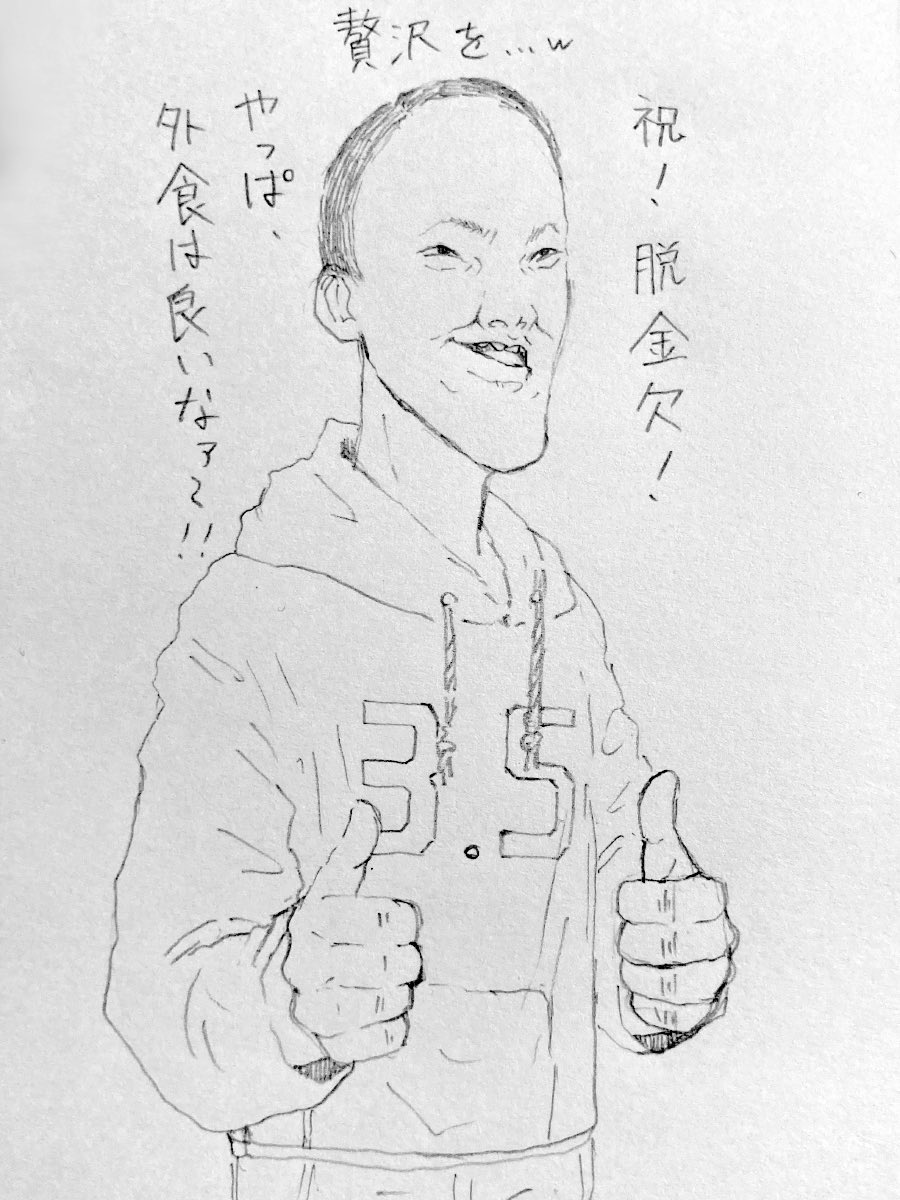 贅沢を...w
祝!脱金欠!
やっぱ、
外食は良いなァ~!!
3.5